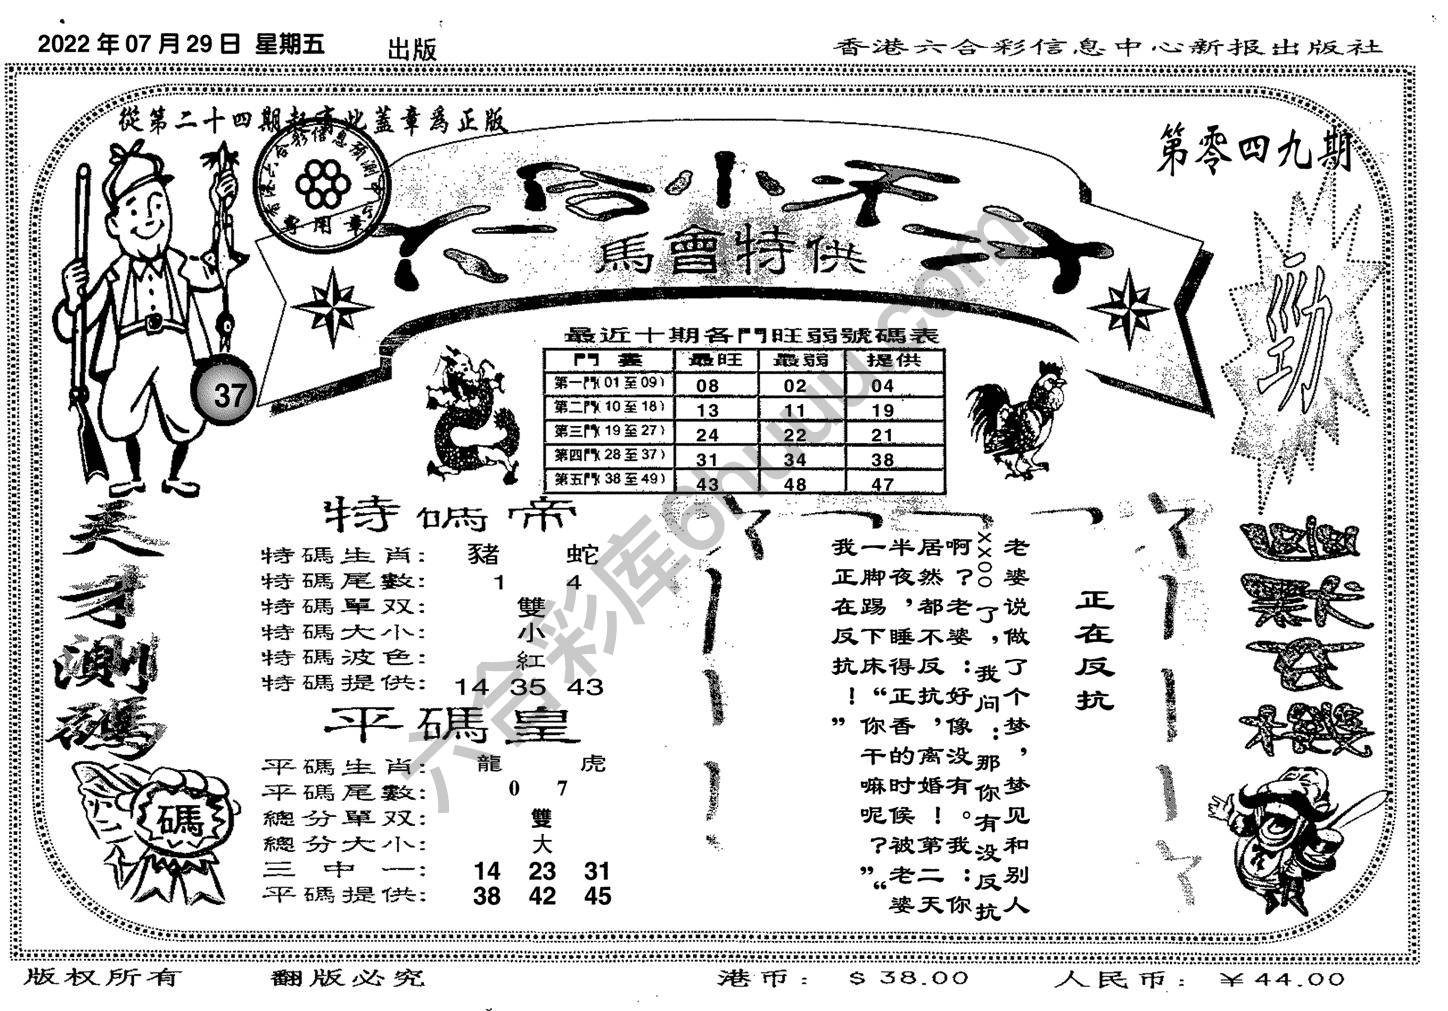 2022 年 07 月 29 日 星期五 出版
香港六合彩信息中心新报出版社
從第二十四期起有此蓋章爲正版
第零四九期
香港六合彩信息預測中心
專用章
馬會特供
勁
37
最近十期各門旺弱號碼表
門 最旺 最弱 提供
第一門(01至09) 08 02 04
第二門(10至18) 13 11 19
第三門(19至27) 24 22 21
第四門(28至37) 31 34 38
第五門(38至49) 43 48 47
天才測碼
特碼帝
特碼生肖: 豬 蛇
特碼尾數: 1 4
特碼單双: 雙
特碼大小: 小
特碼波色: 紅
特碼提供: 14 35 43
平碼皇
平碼生肖: 龍 虎
平碼尾數: 0 7
總分單双: 雙
總分大小: 大
三中一: 14 23 31
平碼提供: 38 42 45
碼
正在反抗
老婆说做了个梦,梦见和别人
xxoo了,我问:那你有没反抗
啊?老婆:好像没有。我:你
居然都不反抗,离婚!第二天
半夜,睡得正香的时候被老婆
一脚踢下床“你干嘛呢?”“
我正在反抗!”
六合彩库6huuu.com
版权所有 翻版必究 港币: $38.00 人民币: ¥44.00